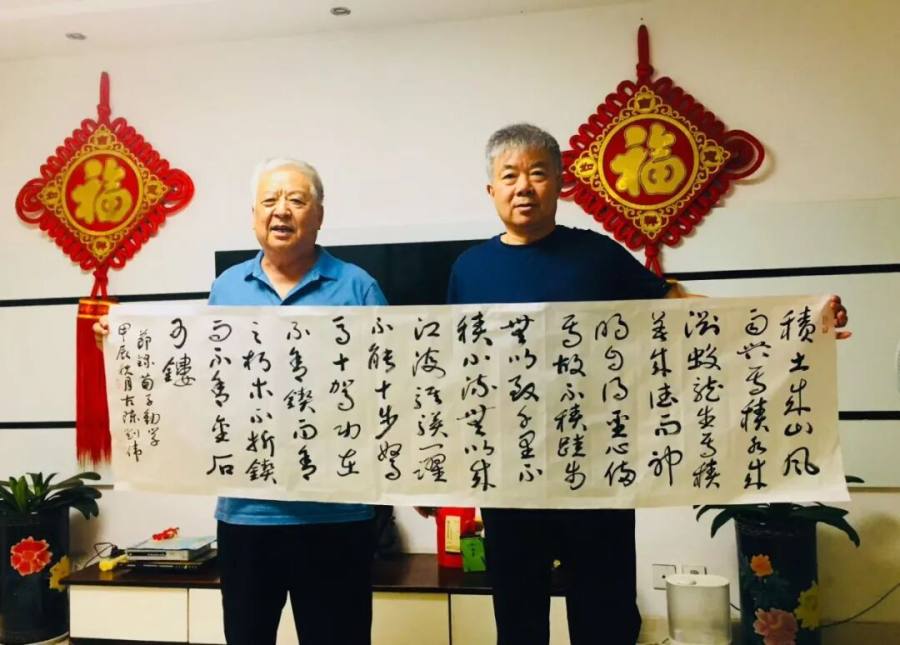 福
福
積土成山風
雨興焉積水成
淵蛟龍生焉積
善成德而神
明自得聖心備
焉故不積跬步
無以致千里不
積小流無以成
江海騏驥一躍
不能十步駑
馬十駕功在
不舍鍥而舍
之朽木不折鍥
而不舍金石
可鏤
節録荀子勸學
甲辰秋月古陈刘伟